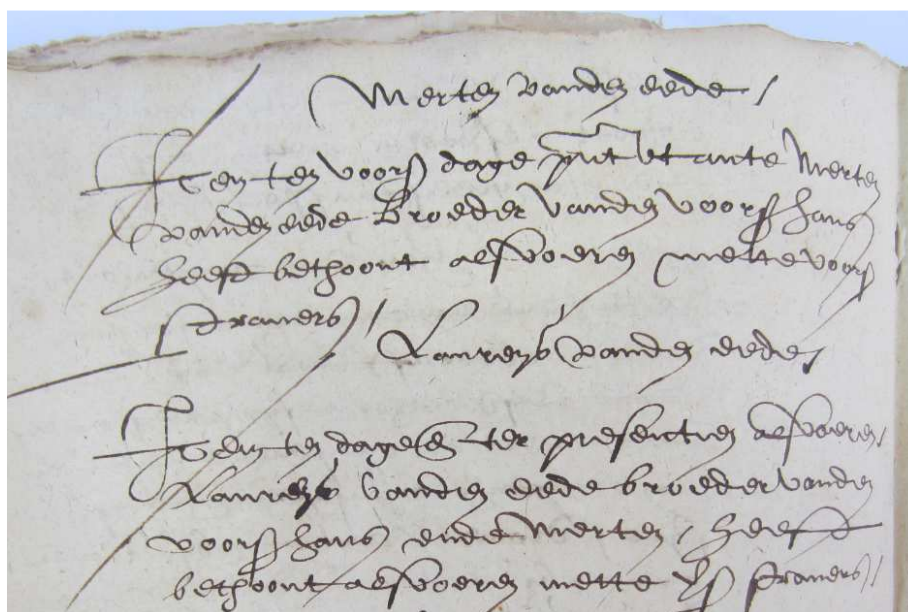 Merten vanden eede /
Item ten voors dage pnt et ante Merten
vanden eede broeder vanden voors hans
heeft bethoont als voeren mette voors
stramers /
Laureys vanden eede /
Item ten dage en ter presentien als voeren
Laureys vanden eede broeder vanden
voors hans ende Merten / heeft
bethoont als voeren mette vs stramers /